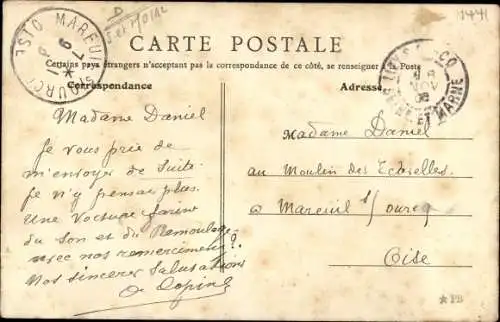 1441
CARTE POSTALE
Certains pays étrangers n'acceptent pas la correspondance de ce côté, se renseigner à la Poste
Correspondance
Adresse
MAREUIL
OURCQ
ET MARNE
NOV
Madame Daniel
Je vous prie de
m'envoyer de Suite
Je n'y pensai plus.
Une Voiture farine
du Son et du Remoulage
avec nos remerciment
Nos sincères Salutations
Madame Daniel
au Moulin des
a Mareuil s/ ourcq
Oise
PB